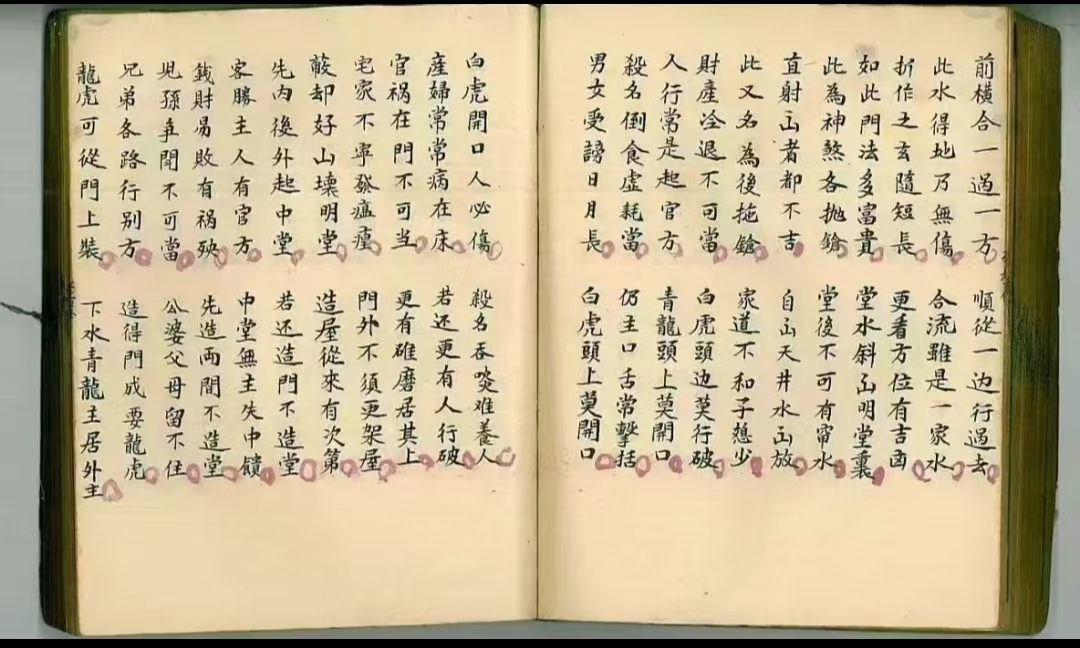 前横合一過一方 順從一边行過去
此水得地乃無傷 合流雖是一家水
折作之玄隨短長 更看方位有吉凶
如此門法多富貴 堂水斜出明堂裏
此為神煞各抛鎗 堂後不可有帘水
直射出者都不吉 自出天井水出放
此又名為後拖鎗 家道不和子媳少
財産冷退不可當 白虎頭边莫行破
人行常是起官方 青龍頭上莫開口
殺名倒食虚耗當 仍主口舌常擊括
男女受謗日月長 白虎頭上莫開口
白虎開口人必傷 殺名吞啖难養人
産婦常常病在床 若还更有人行破
官祸在門不可当 更有碓磨居其上
宅家不寧發瘟㾮 門外不須更架屋
蔽却好山壊明堂 造屋從來有次第
先内後外起中堂 若还造門不造堂
客勝主人有官方 中堂無主失中饋
銭財易敗有祸殃 先造両間不造堂
児孫争閗不可當 公婆父母留不住
兄弟各路行别方 造得門成要龍虎
龍虎可從門上裝 下水青龍主居外主